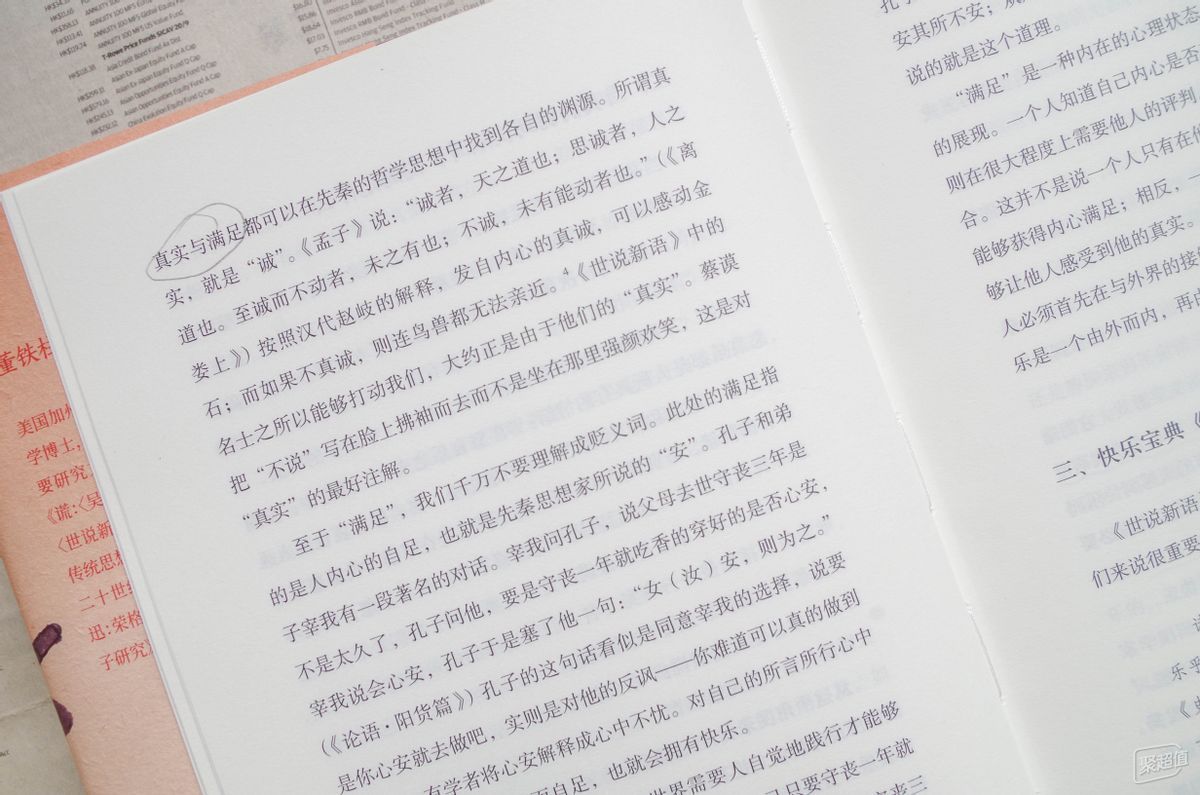 HK$34.37
HK$11.65
HK$158.13
HK$113.41
HK$119.74
ANNUITY 100 MFS Global
ANNUITY 100 MFS US Value Fund
T-Rowe Price Funds SICAV 20/9
HK$118.38 Asia Credit Bond Fund Ax Dist
Asian Ex-Japan Equity Fund A Cap
HK$259.11 Asian Ex-Japan Equity Fund Q Cap
HK$279.16 Asian Opportunities Equity Fund A Cap
HK$245.13 Asian Opportunities Equity Fund Q Cap
HK$252.12 China Evolution Equity Fund A Cap
$15.86
$14.66
$17.03
$7.75
Invesco RMB Bond Fund - Class
Invesco Hang Seng Index Tracking Fund
真实与满足都可以在先秦的哲学思想中找到各自的渊源。所谓真
实，就是“诚”。《孟子》说：“诚者，天之道也；思诚者，人之
道也。至诚而不动者，未之有也；不诚，未有能动者也。”（《离
娄上》）按照汉代赵岐的解释，发自内心的真诚，可以感动金
石；而如果不真诚，则连鸟兽都无法亲近。4《世说新语》中的
名士之所以能够打动我们，大约正是由于他们的“真实”。蔡谟
把“不说”写在脸上拂袖而去而不是坐在那里强颜欢笑，这是对
“真实”的最好注解。
至于“满足”，我们千万不要理解成贬义词。此处的满足指
的是人内心的自足，也就是先秦思想家所说的“安”。孔子和弟
子宰我有一段著名的对话。宰我问孔子，说父母去世守丧三年是
不是太久了，孔子问他，要是守丧一年就吃香的穿好的是否心安，
宰我说会心安，孔子于是塞了他一句：“女（汝）安，则为之。”
（《论语·阳货篇》）孔子的这句话看似是同意宰我的选择，说要
是你心安就去做吧，实则是对他的反讽——你难道可以真的做到
有学者将心安解释成心中不忧。对自己的所言所行心中
而自足，也就会拥有快乐。
世界需要人自觉地践行才能够
己只要守丧一年就
安丧三
安其所不安；
说的就是这个道理。
“满足”是一种内在的心理状态
的展现。一个人知道自己内心是否
则在很大程度上需要他人的评判
合。这并不是说一个人只有在他
能够获得内心满足；相反，一
够让他人感受到他的真实。
人必须首先在与外界的接
乐是一个由外而内，再
三、快乐宝典《
《世说新语
们来说很重要
乐乎
董铁柱
美国加州
学博士，
要研究
《谎:〈吴
〈世说新
传统思想
二十世
迅:荣格
子研究》
聚超值